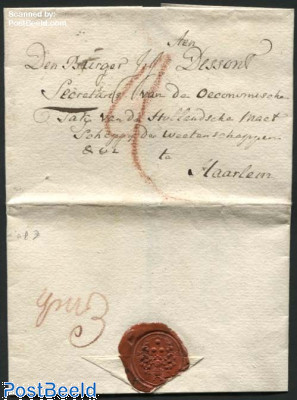 Scanned by
www.postbeeld.com
Den Burger Dessont
Secretaris van de Oeconomische
Tak van de Hollandsche Maat
Schappy der Weetenschappen
&c &c te
Haarlem
PostBeeld